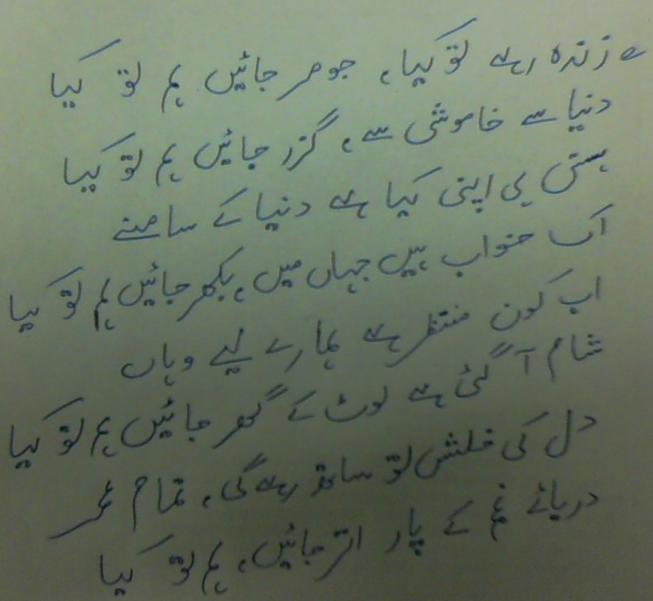 زندہ رہے تو کیا، جو مر جائیں ہم تو کیا
دنیا سے خاموشی سے، گزر جائیں ہم تو کیا
ہستی ہی اپنی کیا ہے دنیا کے سامنے
اک خواب ہیں جہاں میں، بکھر جائیں ہم تو کیا
اب کون منتظر ہے ہمارے لیے وہاں
شام آ گئی ہے لوٹ کے گھر جائیں ہم تو کیا
دل کی خلش تو ساتھ رہے گی، تمام عمر
دریائے غم کے پار اتر جائیں، ہم تو کیا